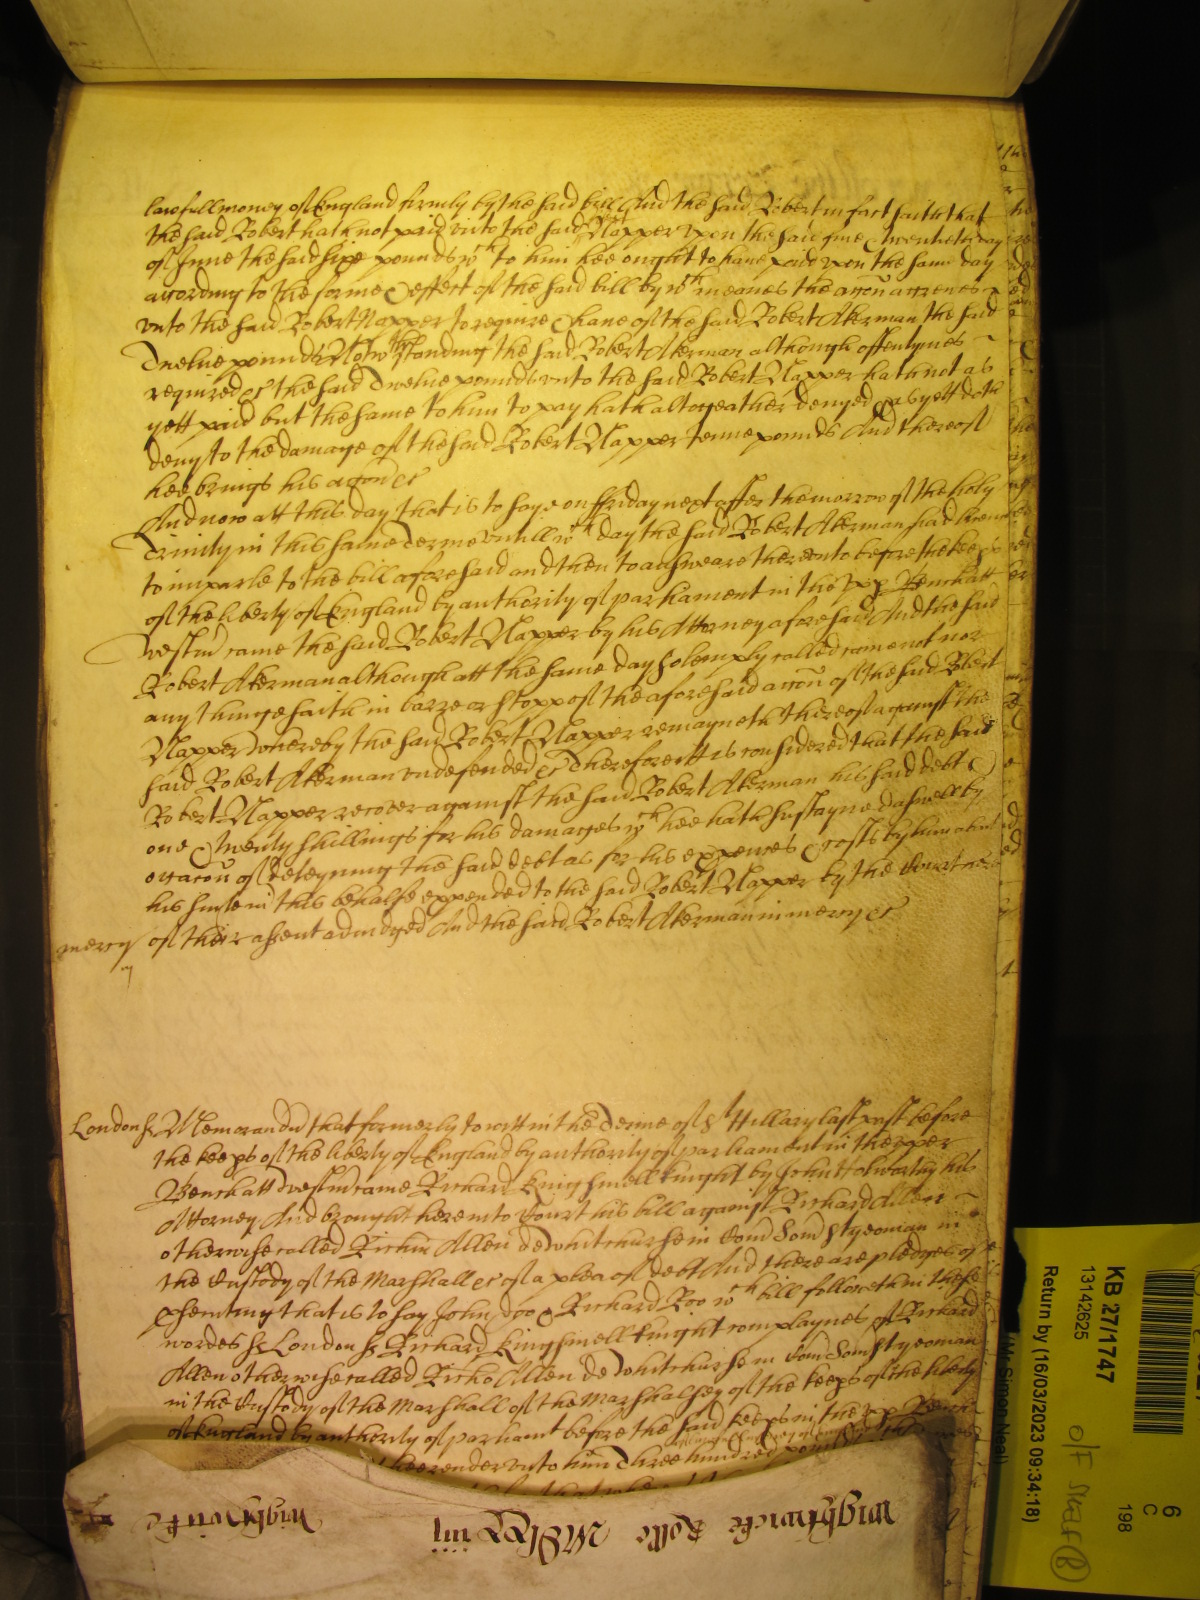 lawfull money of England firmly by the said bill And the said Robert in fact saith that
the said Robert hath not paid unto the said Napper upon the said five & twentieth day
of June the said sixe pounds wch to him hee ought to have paid upon the same day
according to the forme & effect of the said bill by wch meanes the accōn accrewes
unto the said Robert Napper to require & have of the said Robert Akerman the said
Twelve pounds Notwthstanding the said Robert Akerman although oftentymes
required &c the said Twelve pounds unto the said Robert Napper hath not as
yett paid but the same to him to pay hath altogeather denyed & as yett doth
deny to the damage of the said Robert Napper tenne pounds And thereof
hee brings his accōn &c
And now att this day that is to saye on Friday next after the morrow of the holy
Trinity in this same Terme untill wch day the said Robert Akerman had leave
to imparle to the bill aforesaid and then to answeare thereunto before the keeps
of the liberty of England by authority of parliament in the upp Bench att
Westm̄ came the said Robert Napper by his Attorney aforesaid And the said
Robert Akerman although att the same day solemply called came not nor
any thinge saith in barre or stopp of the aforesaid accōn of the said Robert
Napper whereby the said Robert Napper remayneth thereof against the
said Robert Akerman undefended &c Therefore itt is considered that the said
Robert Napper recover against the said Robert Akerman his said debt &
one & twenty shillings for his damages wch hee hath sustayned aswell by
occacōn of deteyning the said debt as for his expences & costs by him about
his suite in this behalfe expended to the said Robert Napper by the Court here
mercy of their assent adiudged And the said Robert Akerman in mercy &c
London ss Memorandū that formerly to witt in the Terme of St Hillary last past before
the keeps of the liberty of England by authority of parliament in the upper
Bench att Westm̄ came Richard Kingsmell knight by John Holworthy his
Attorney And brought here into Court his bill against Richard Allen
otherwise called Richm̄ Allen de Whitchurch in Com̄ Som̄st yeoman in
the Custody of the Marshall &c of a plea of debt And there are pledges of
psecuting that is to say John Doo & Richard Roo wch bill followeth in these
wordes ss London ss Richard Kingsmell knight complaynes of Richard
Allen otherwise called Richo Allen de Whitchurch in Com̄ Som̄st yeoman
in the Custody of the Marshall of the Marshalsey of the keeps of the liberty
of England by authority of parliamt before the said keeps in the upp Bench
hee render unto him Three hundred
Wightwicke Rolle
Wightwicke
KB 27/1747
13142625
Return by (16/03/2023 09:34:18)
6
C
198
(Mr Simon Neal)